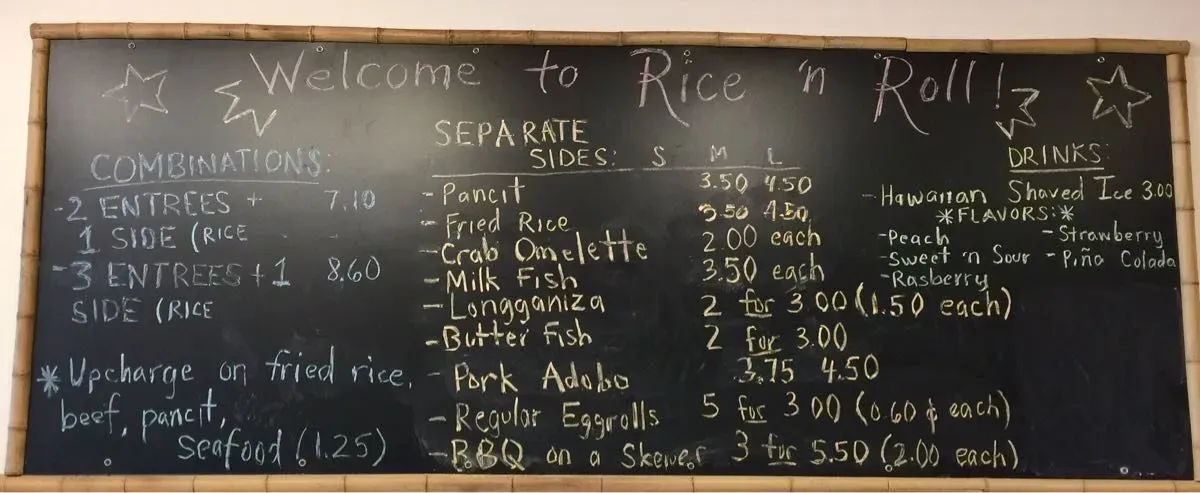 Welcome to Rice 'n Roll!
COMBINATIONS:
-2 ENTREES + 7.10
1 SIDE (RICE
-3 ENTREES + 1 8.60
SIDE (RICE
*Upcharge on fried rice,
beef, pancit,
Seafood (1.25)
SEPARATE
SIDES: S M L
-Pancit 3.50 4.50
-Fried Rice 3.50 4.50
-Crab Omelette 2.00 each
-Milk Fish 3.50 each
-Longganiza 2 for 3.00 (1.50 each)
-Butter Fish 2 for 3.00
-Pork Adobo 3.75 4.50
-Regular Eggrolls 5 for 3.00 (0.60 ¢ each)
-BBQ on a Skewer 3 for 5.50 (2.00 each)
DRINKS:
-Hawaiian Shaved Ice 3.00
*FLAVORS:*
-Peach -Strawberry
-Sweet 'n Sour -Piña Colada
-Rasberry